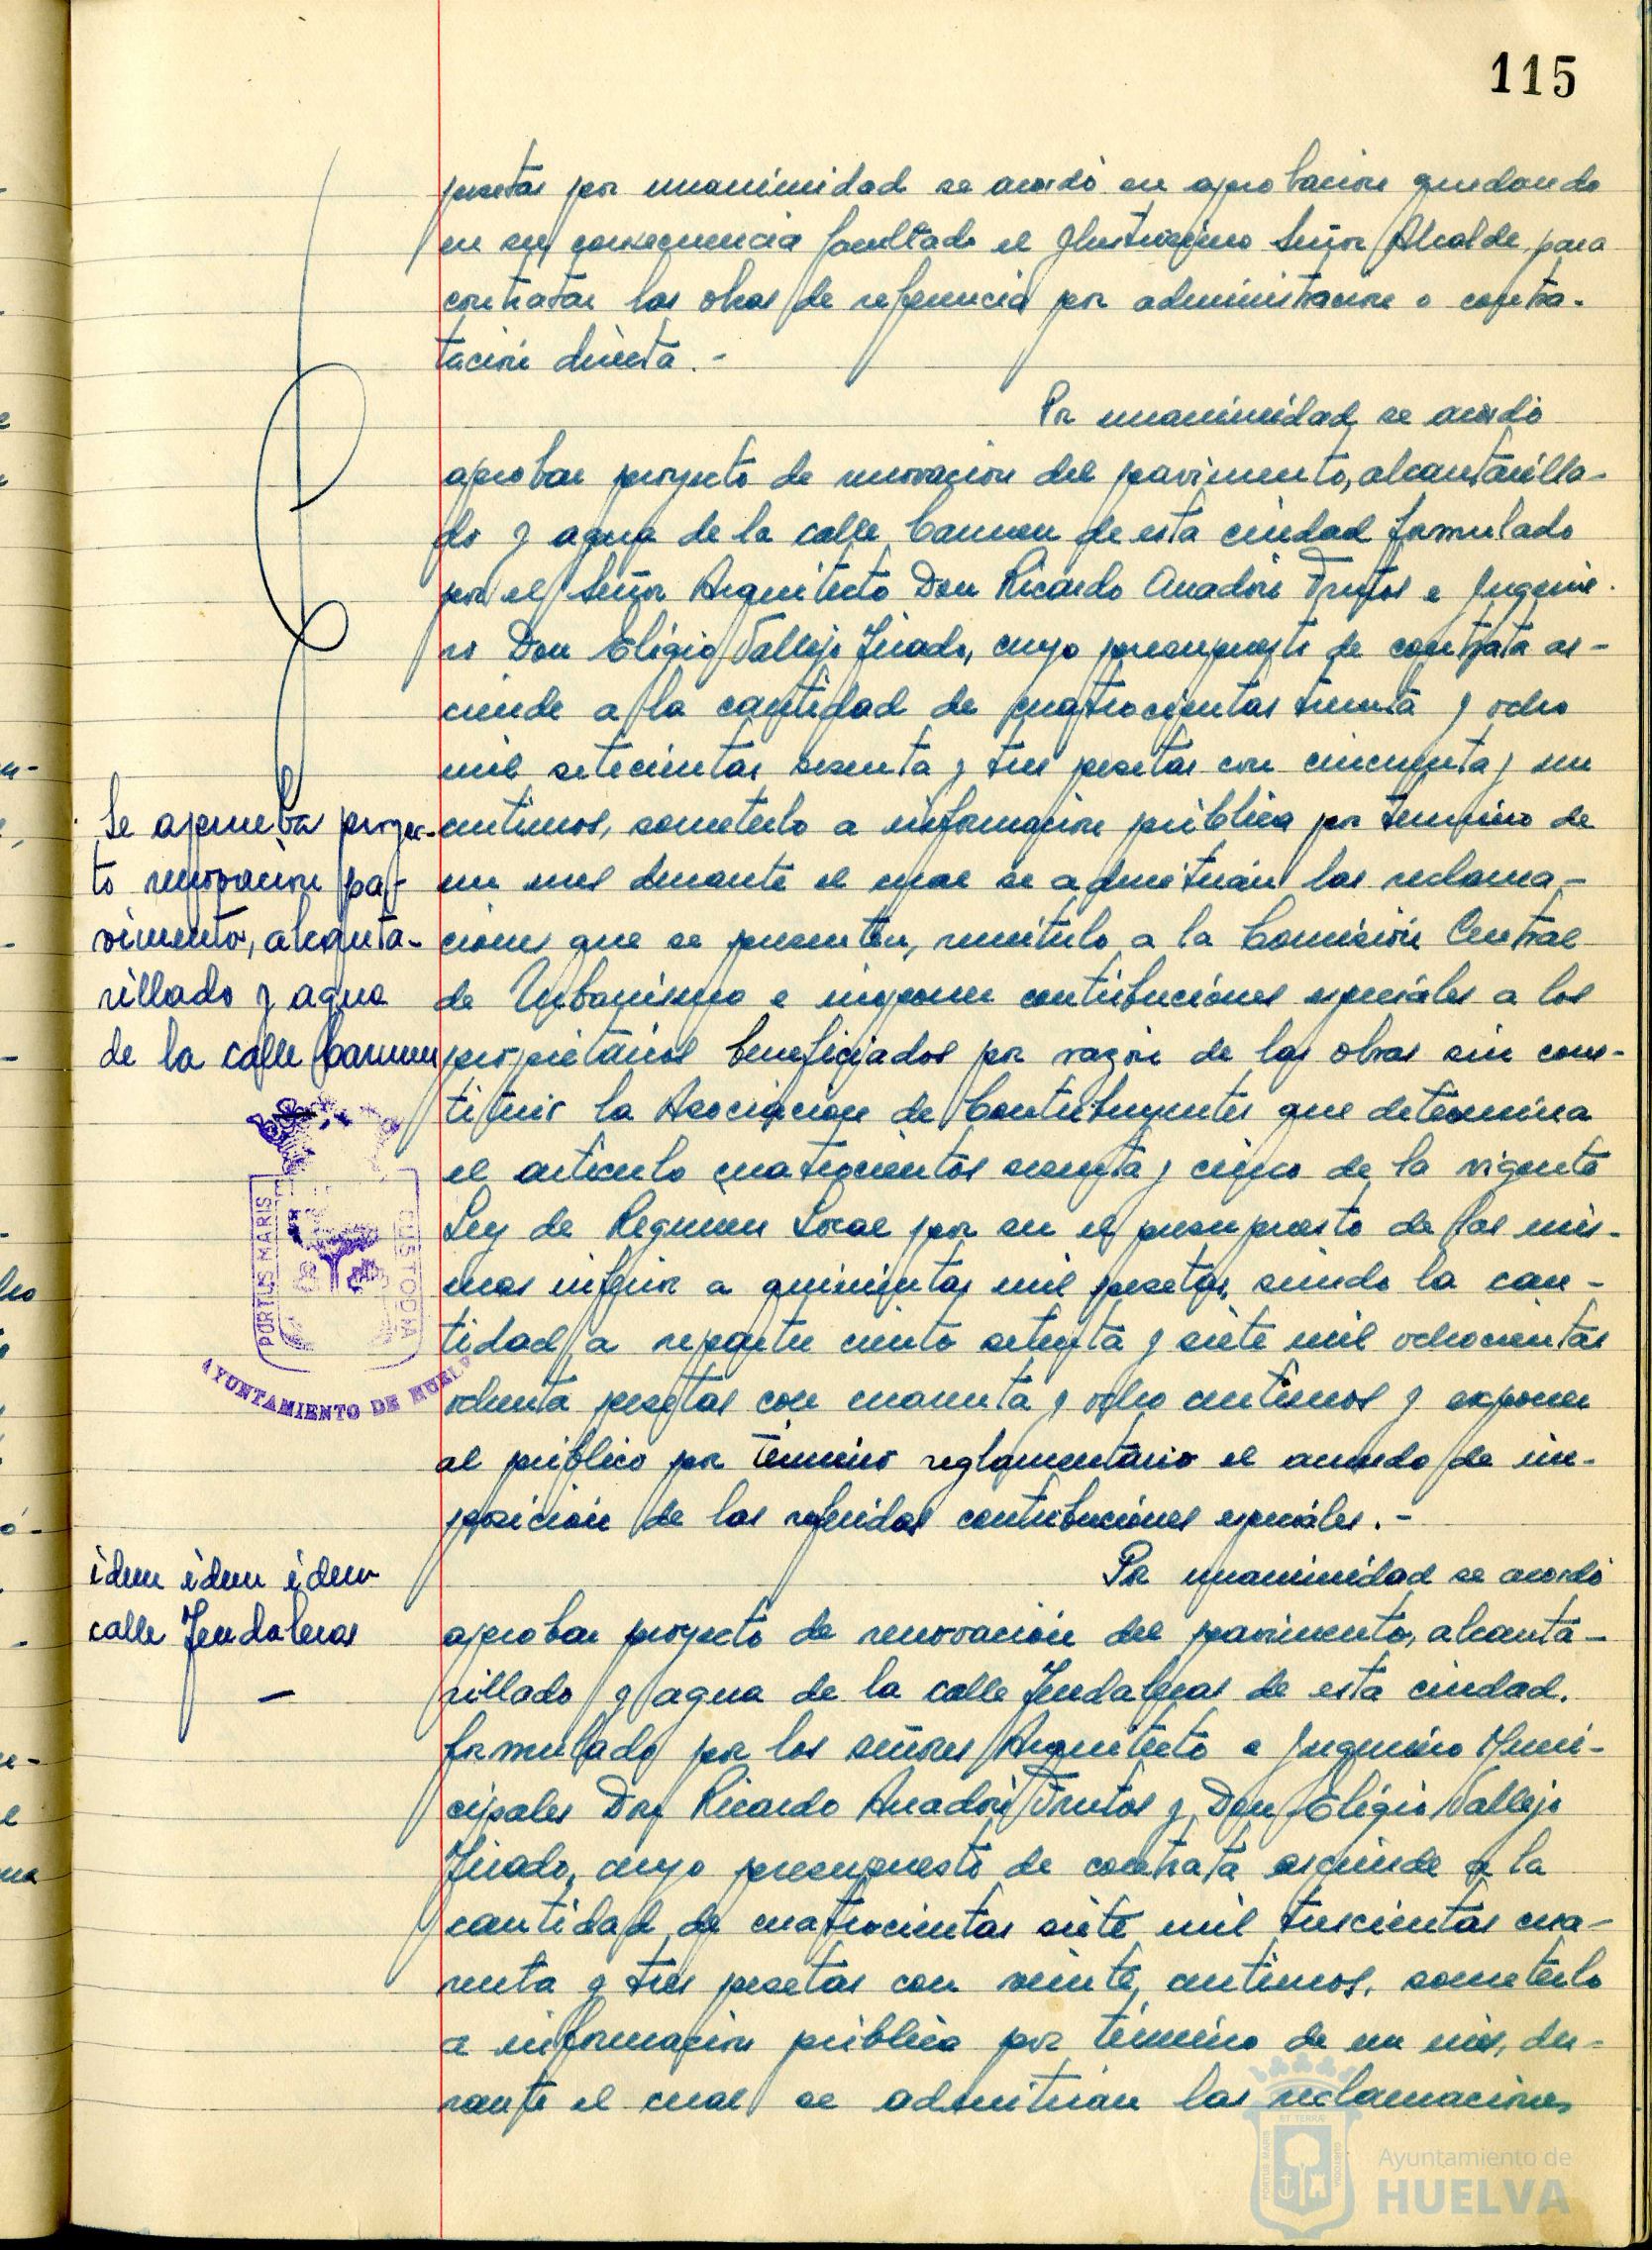 115
pesetas por unanimidad se acordó su aprobación quedando
en su consecuencia facultado el Ilustrisimo Señor Alcalde para
contratar las obras de referencia por administracion o contra-
tación directa.-
Por unanimidad se acordó
aprobar proyecto de renovación del pavimento, alcantarilla-
do y agua de la calle Carmen de esta ciudad formulado
por el Señor Arquitecto Don Ricardo Anadón Frutos e Ingenie-
ro Don Eligio Vallejo Jirado, cuyo presupuesto de contrata as-
ciende a la cantidad de cuatrocientas treinta y ocho
mil setecientas sesenta y tres pesetas con cincuenta y un
Se aprueba proyec-
to renovación pa-
vimento, alcanta-
rillado y agua
de la calle Carmen
centimos, someterlo a información pública por termino de
un mes durante el cual se admitirán las reclama-
ciones que se presenten, remitirlo a la Comisión Central
de Urbanismo e imponer contribuciones especiales a los
propietarios beneficiados por razón de las obras sin cons-
tituir la Asociacion de Contribuyentes que determina
el articulo cuatrocientos sesenta y cinco de la vigente
Ley de Regimen Local por ser el presupuesto de las mis-
mas inferior a quinientas mil pesetas, siendo la can-
tidad a repartir ciento setenta y siete mil ochocientas
ochenta pesetas con cuarenta y ocho centimos y exponer
al público por término reglamentario el acuerdo de im-
posición de las referidas contribuciones especiales.-
PORTUS MARIS
CUSTODIA
AYUNTAMIENTO DE HUELVA
idem idem idem
calle Jendaleras
Por unanimidad se acordó
aprobar proyecto de renovación del pavimento, alcanta-
rillado y agua de la calle Jendaleras de esta ciudad.
formulado por los señores Arquitecto e Ingeniero Muni-
cipales Don Ricardo Anadón Frutos y Don Eligio Vallejo
Jirado, cuyo presupuesto de contrata asciende a la
cantidad de cuatrocientas siete mil trescientas cua-
renta y tres pesetas con veinte centimos, someterlo
a informacion pública por término de un mes, du-
rante el cual se admitirán las reclamaciones
Ayuntamiento de
HUELVA